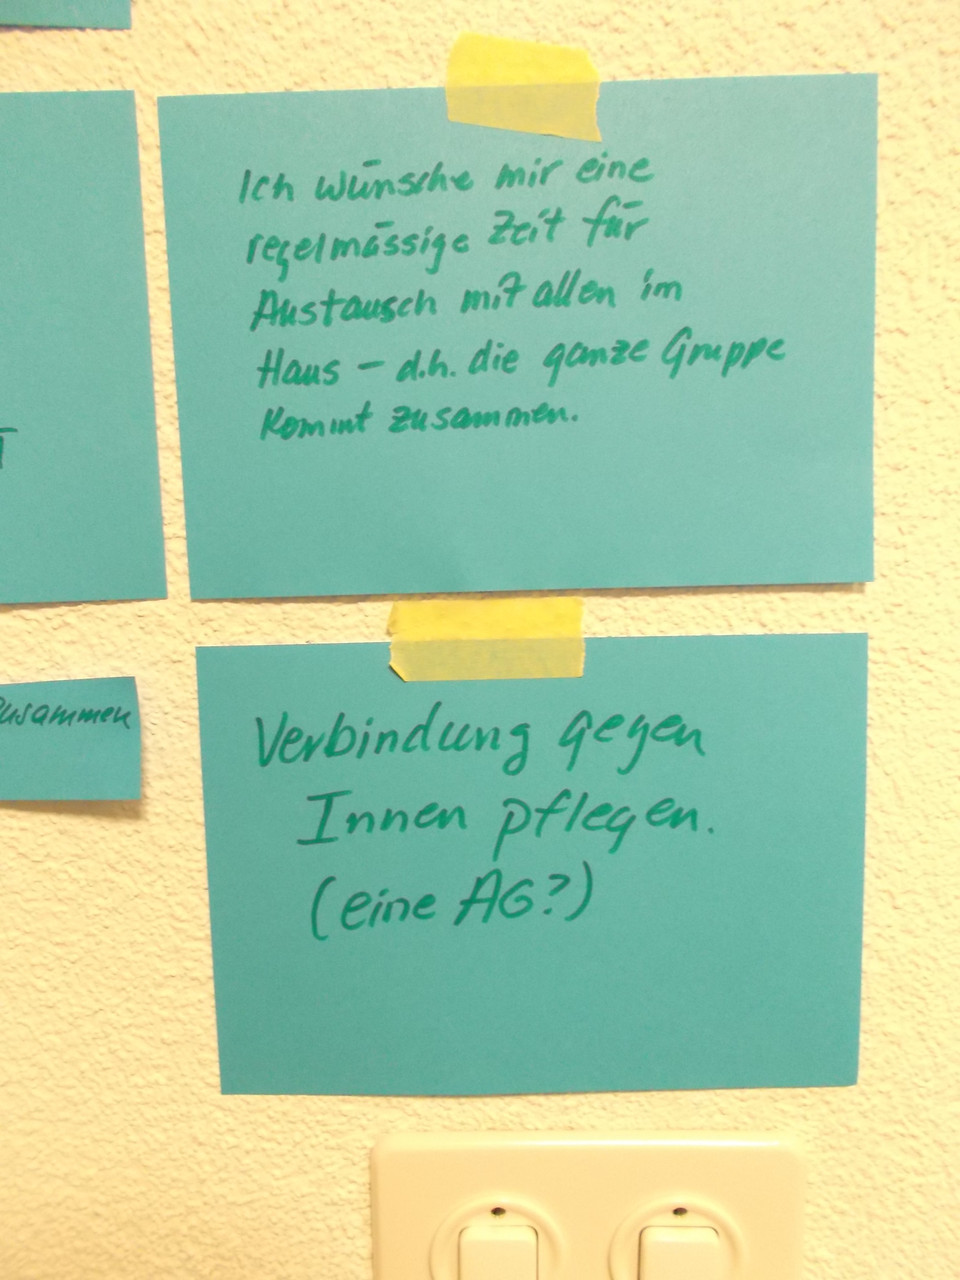 Ich wünsche mir eine
regelmässige Zeit für
Austausch mit allen im
Haus – d.h. die ganze Gruppe
kommt zusammen.
zusammen
Verbindung gegen
Innen pflegen.
(eine AG?)